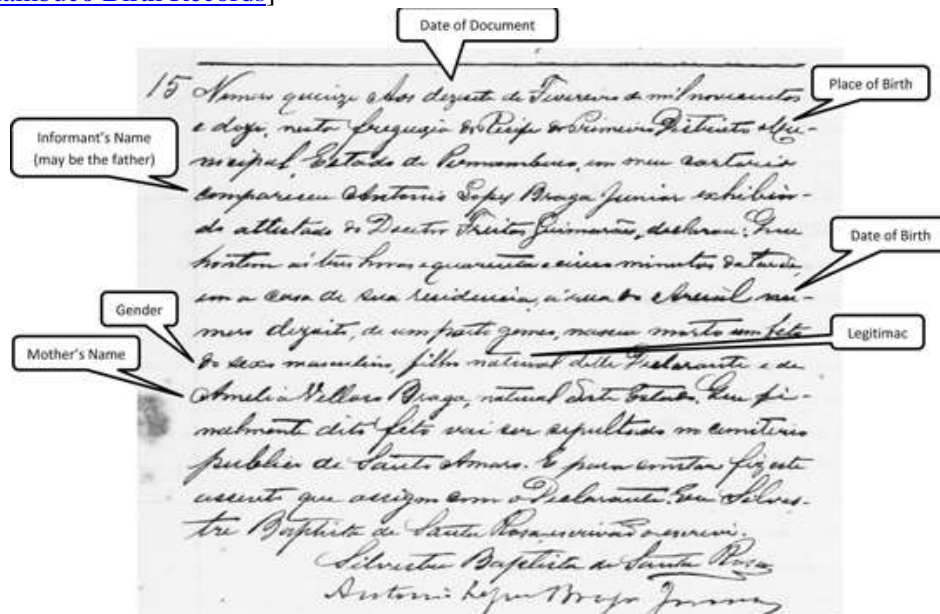 ambuco Birth Records]
Date of Document
Place of Birth
Informant's Name
(may be the father)
Date of Birth
Gender
Legitimac
Mother's Name
15 Numero quinze Aos dezoito de Fevereiro de mil novecentos
e doze, nesta freguezia do Recife do Primeiro Districto Mu-
nicipal, Estado de Pernambuco, em meu cartorio
compareceu Antonio Lopes Braga Junior exhibin-
do attestado do Doutor Freitas Guimarães, declarou: Que
hontem às tres horas e quarenta e cinco minutos da tarde,
em a casa de sua residencia, à rua do Areial nu-
mero dezoito, de um parto gemeo, nasceu morto um feto
do sexo masculino, filho natural delle Declarante e de
Amelia Vellozo Braga, natural deste Estado. Que fi-
nalmente dito feto vai ser sepultado no cemiterio
publico de Santo Amaro. E para constar fiz este
assento que assigno com o Declarante. Eu Silves-
tre Baptista de Santa Rosa, escrivão o escrevi.
Silvestre Baptista de Santa Rosa
Antonio Lopes Braga Junior